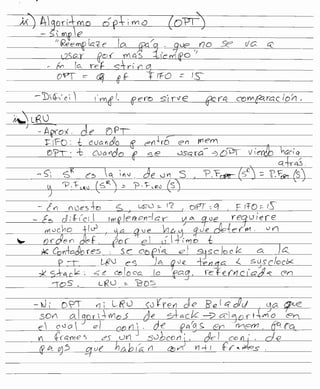 ii) Algoritmo óptimo (OPT)
- Simple
"Reemplaze la pág. que no se va a
usar por más tiempo"
- En la ref string
OPT = 9 pf FIFO = 15
- Difícil impl. pero sirve para comparación.
LRU
- Aprox. de OPT
FIFO: t cuando p entró en mem
OPT: t cuando p se usará → OPT viendo hacia
atrás
- Si S^R es la inv. de un S, P.F (S^R) = P.F (S)
y P.F (S^R) = P.F (S)
- En nuestro S, LRU = 12, OPT = 9, FIFO = 15
- Es difícil implementar ya que requiere
mucho HW, ya que hay que determ. un
orden def. por el último t
* Contadores: se copia el sysclock a la
PT LRU es la que tenga < sysclock
* Stack: se coloca la pag. referenciada en
TOS. LRU = BOS
- Ni OPT ni LRU sufren de Belady, ya que
son algoritmos de stack → algoritmo en
el cual el conj. de pags en mem. para
n frames es un subconj. del conj. de
pags que habían con n+1 frames